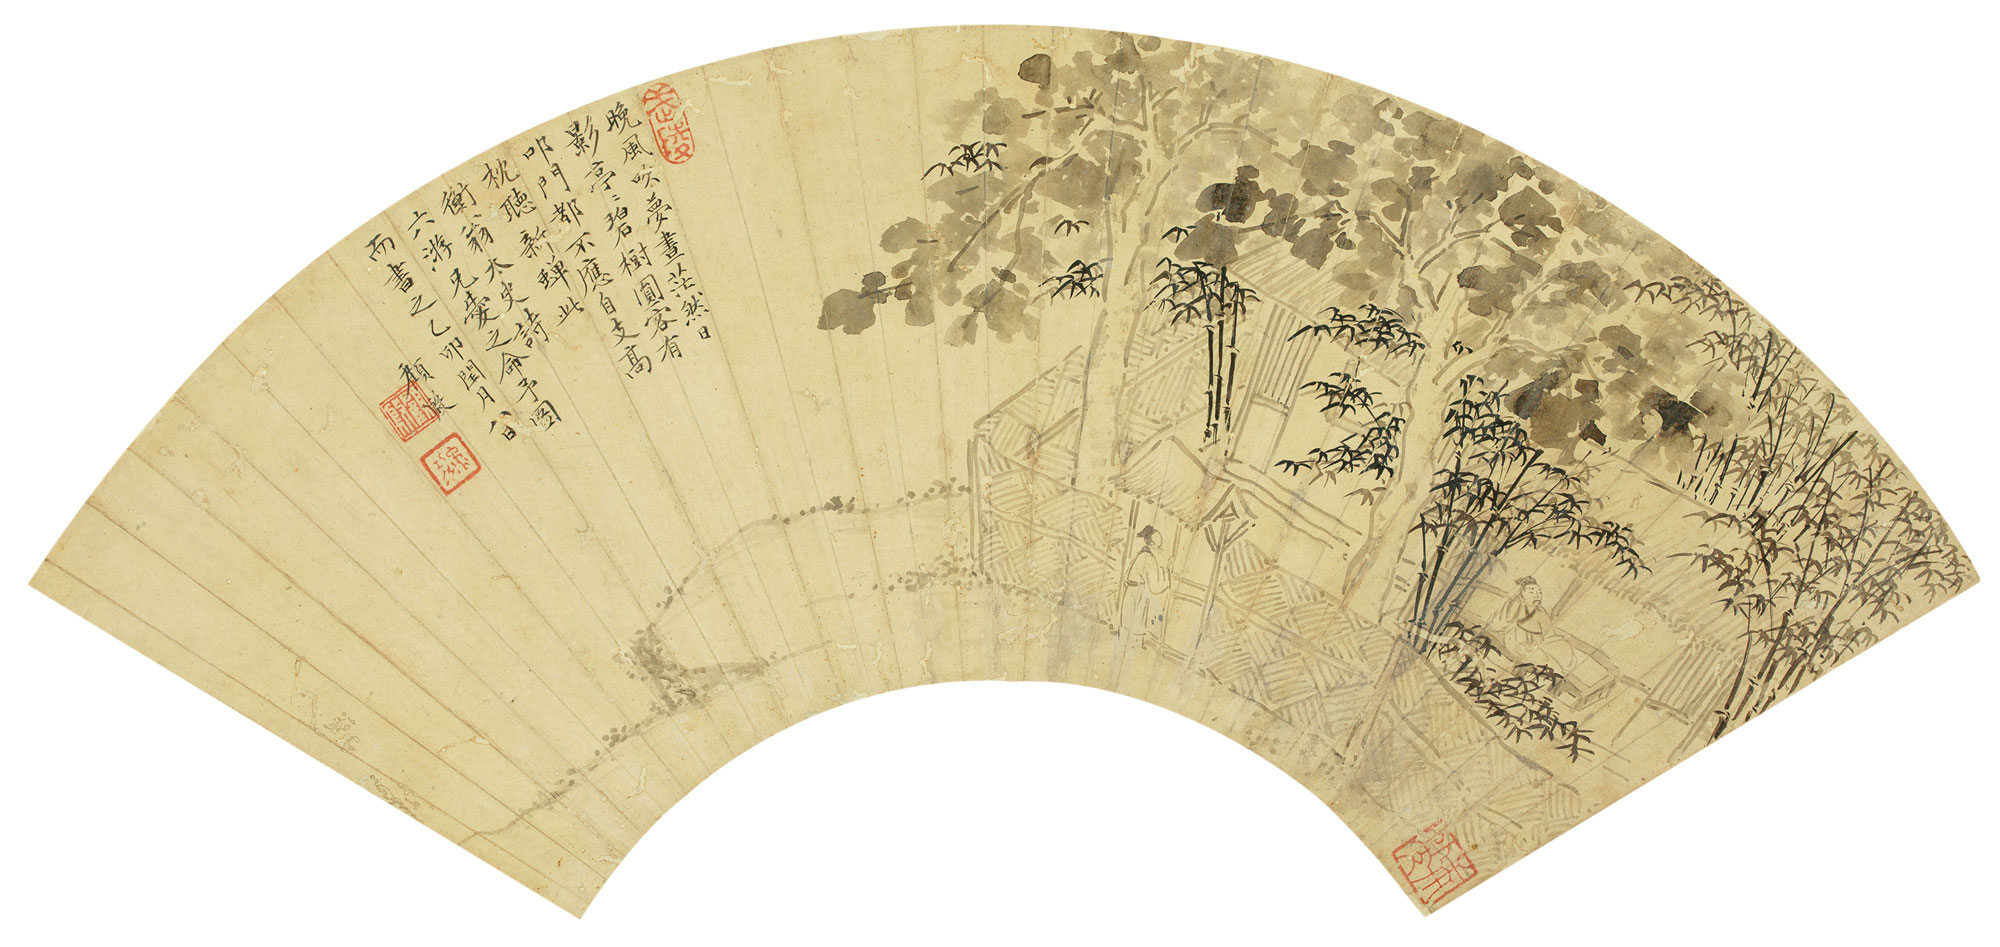 晚風吹夢晝茫然日
影亭〻碧樹圓客有
叩門都不應自支高
枕聽新蟬此
衡翁太史詩
六游兄愛之命予圖
而書之乙卯閏月八日
顧